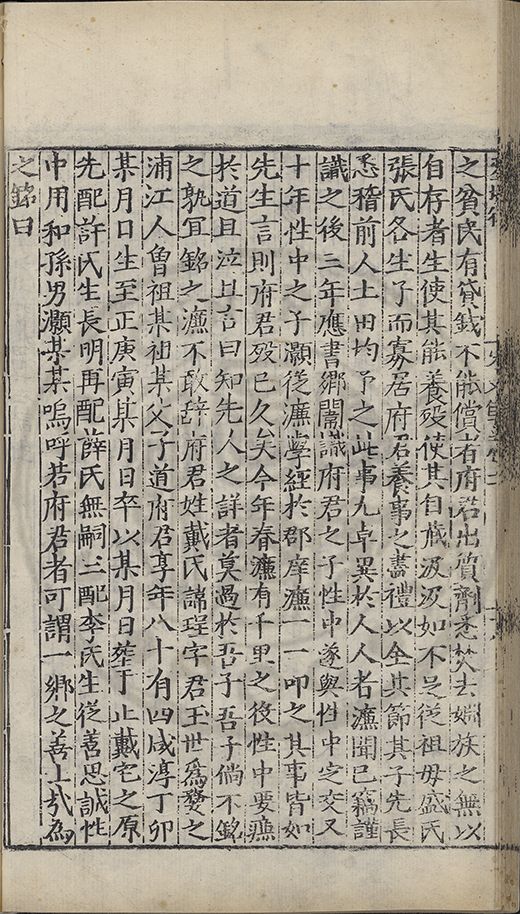 之貧民有貸錢不能償者府君出質劑悉焚去姻族之無以
自存者生使其能養殁使其自藏汲汲如不足從祖母盛氏
張氏各生子而寡居府君養事之盡禮以全其節其子先長
悉稽前人土田均予之此事尤卓異於人人者濂聞已竊謹
識之後三年應書鄉闈識府君之子性中遂與性中定交又
十年性中之子灝從濂學經於郡庠濂一一叩之其事皆如
先生言則府君殁已久矣今年春濂有千里之役性中要濂
於道且泣且言曰知先人之詳者莫過於吾子吾子倘不銘
之孰宜銘之濂不敢辭府君姓戴氏諱珵字君玉世爲婺之
浦江人曾祖某祖某父子道府君享年八十有四咸淳丁卯
某月日生至正庚寅某月日卒以某月日塟于止戴宅之原
先配許氏生長明再配薛氏無嗣三配李氏生從善思誠性
中用和孫男灝某某嗚呼若府君者可謂一鄉之善士矣爲
之銘曰